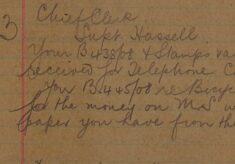 3 Chief Clerk
Supt Hassell.
Your B435/08 & Stamps
received for Telephone C
Your B.445/08 re Bicy
for the money on Ms w
paper you have from th